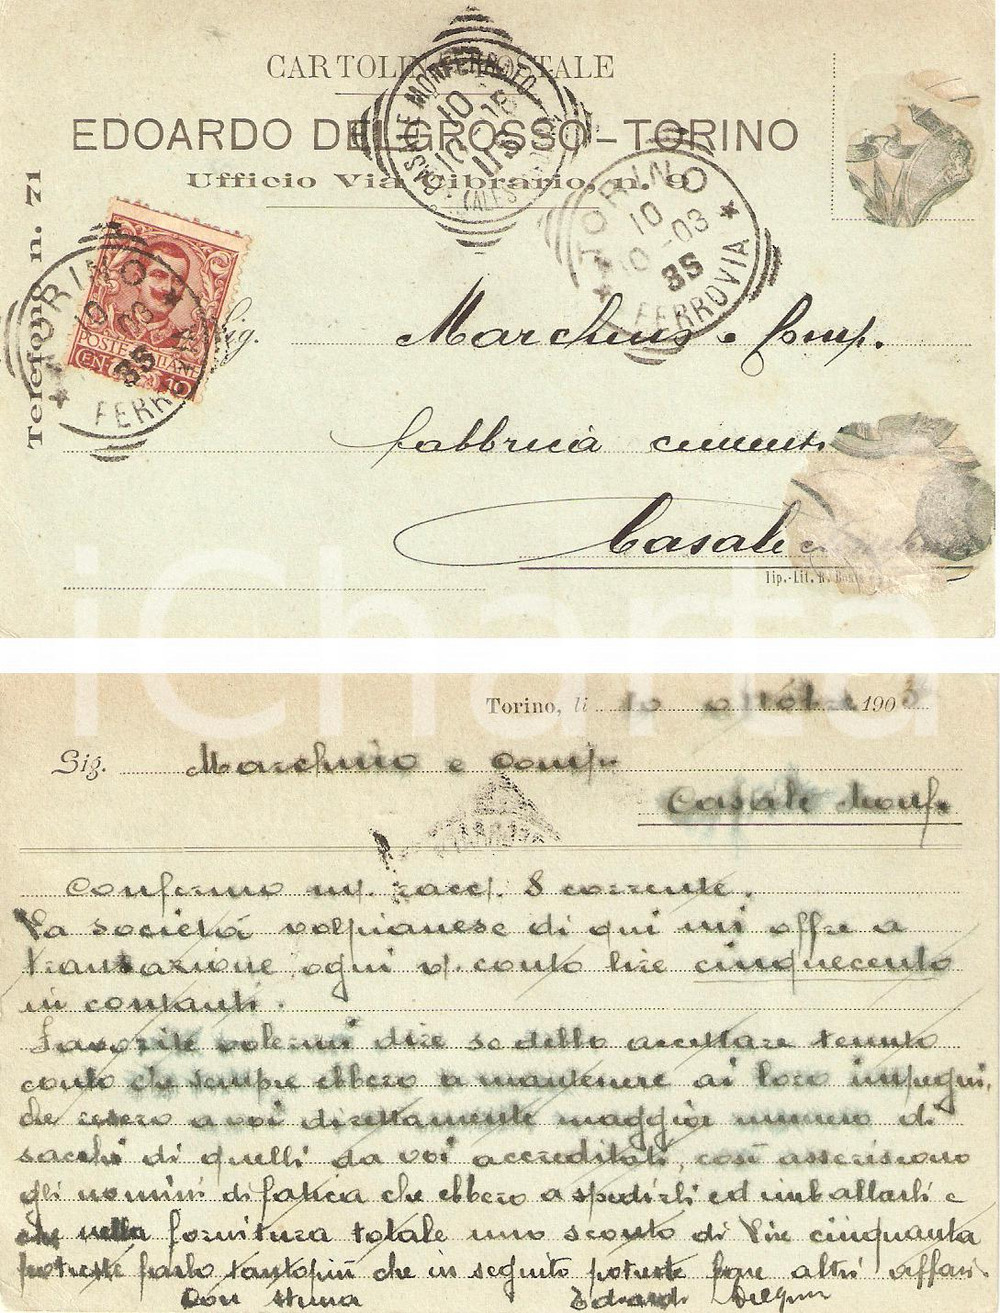 CARTOLINA POSTALE
EDOARDO DELGROSSO - TORINO
Ufficio Via Cibrario, n. 9
Telefono n. 71
CASALE MONFERRATO
10
TORINO
10
10-03
8S
FERROVIA
TORINO
10
03
8S
FERR
POSTE ITALIANE
CEN 10
Sig. Marchino e Comp.
fabbrica cementi
Casale
Tip.-Lit. R.
iCharta
Torino, li 10 ottobre 1903
Sig. Marchino e Comp.
Casale Monf.
Confermo mf. racc. 8 corrente.
La società volpianese di qui mi offre a
transazione ogni v. conto lire cinquecento
in contanti.
Favorite volermi dire se debbo accettare tenuto
conto che sempre ebbero a mantenere ai loro impegni,
che resero a voi direttamente maggior numero di
sacchi di quelli da voi accreditati, così asseriscono
gli uomini di fatica che ebbero a spedirli ed imballarli e
che nella fornitura totale uno sconto di lire cinquanta
potreste farlo tantopiù che in seguito potreste fare altri affari.
Con stima
Edoardo Delgrosso